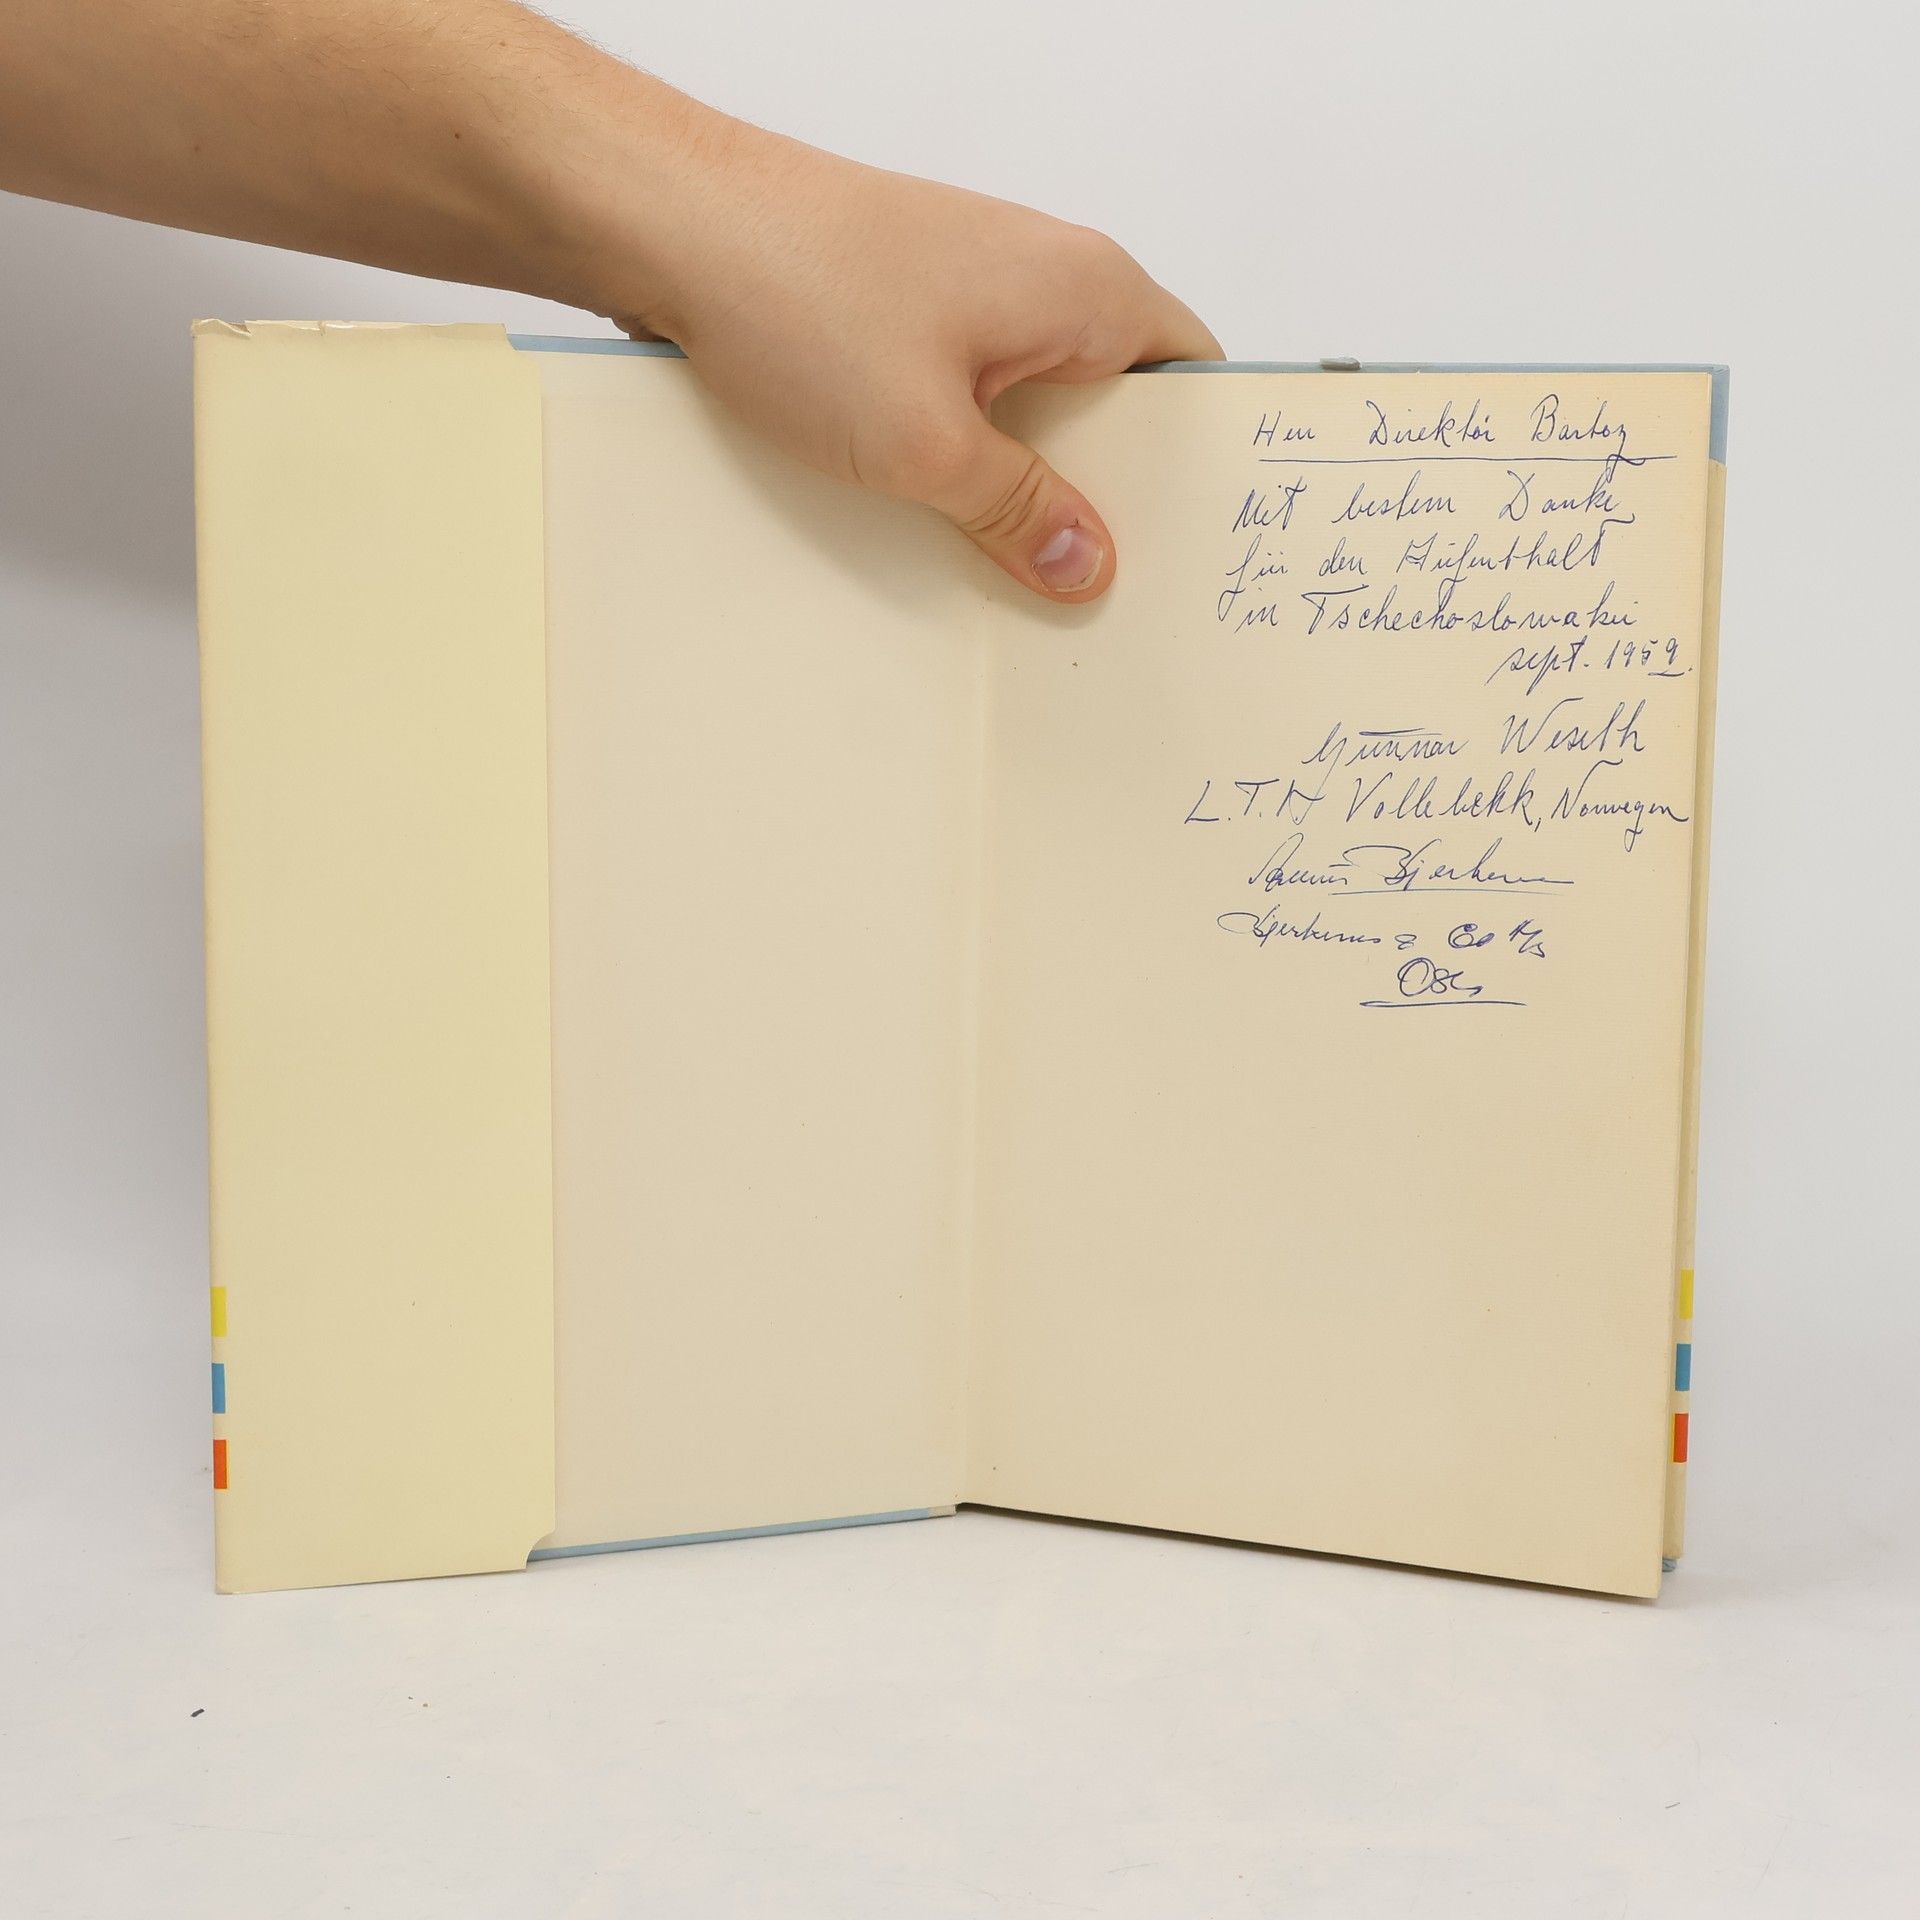 Herr Direktór Bartoz
Mit bestem Danke
für den Aufenthalt
in Tschechoslowakei
sept. 1959.
Gunnar Weseth
L.T.I Vollebekk, Norwegen
Bjerkenes & Co A/S
Oslo